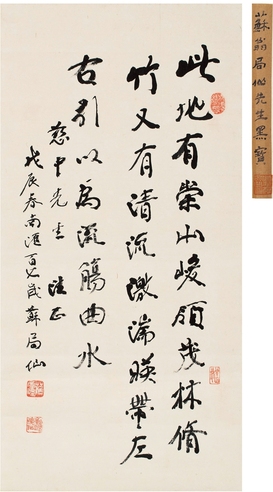 蘇翁局仙先生墨寶
此地有崇山峻領茂林脩
竹又有清流激湍暎帶左
右引以為流觴曲水
慈中先生法正
戊辰春南滙百七歲蘇局仙